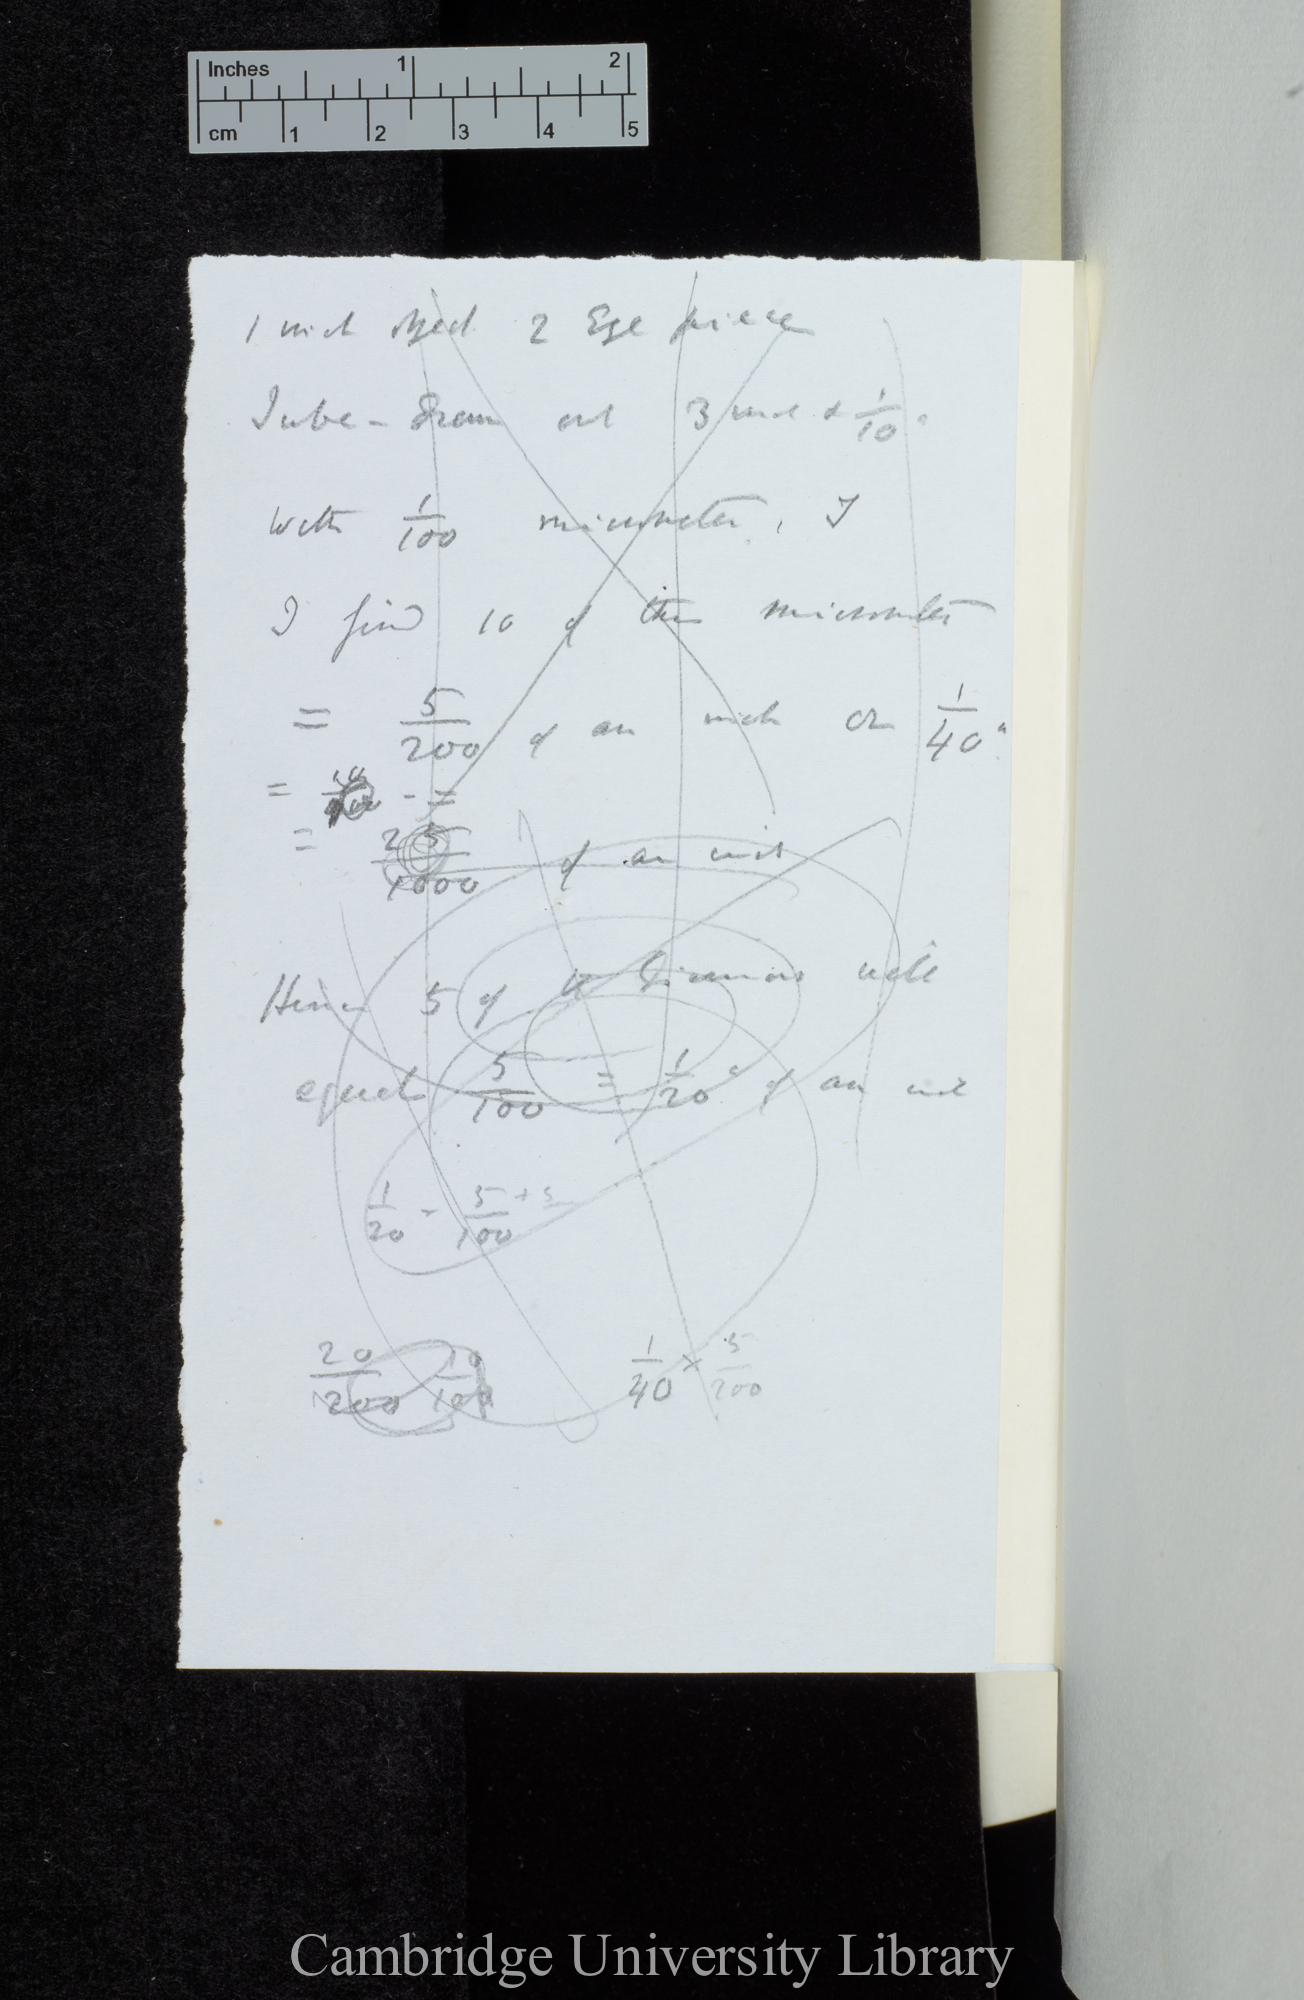 Inches 1 2
cm 1 2 3 4 5
1 inch object 2 Eye piece
Tube-drawn out 3 inch & 1/10"
With 1/100 micrometer, I
I find 10 of this micrometer
= 5/200 of an inch or 1/40"
=
= 25/1000 of an inch
Hence 5 of the divisions will
equal 5/100 = 1/20" of an inch
1/20 - 5/100 + 5
20/1200 10/100 1/40 × 5/200
Cambridge University Library